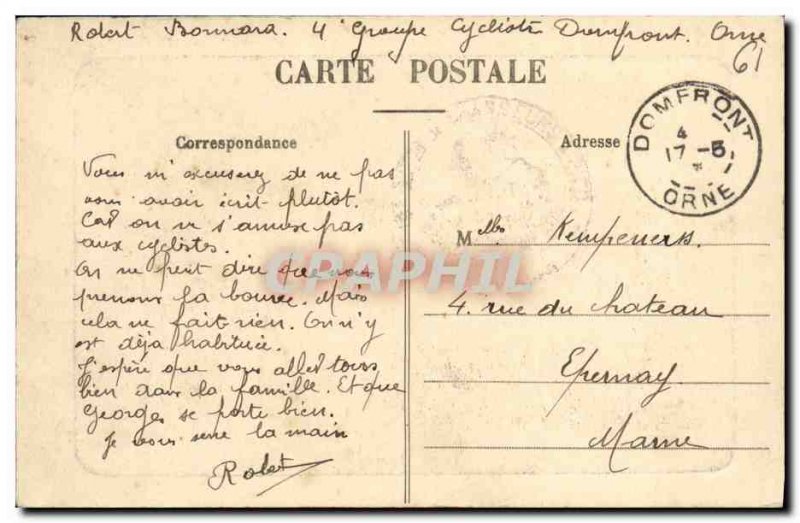 Robert Bonnard. 4e Groupe Cycliste Domfront. Orne
61
CARTE POSTALE
Correspondance
Adresse
DOMFRONT
4
17 -5
ORNE
Vous m'excuserez de ne pas
vous avoir écrit plutôt.
Car on ne s'amuse pas
aux cyclistes.
On ne peut dire que nous
prenons la bourre. Mais
cela ne fait rien. On n'y
est déja habitué.
J'espère que vous allez tous
bien dans la famille. Et que
Georges se porte bien.
Je vous serre la main
Robert
Melles Kempeners.
4. rue du chateau
Epernay
Marne
CPAPHIL